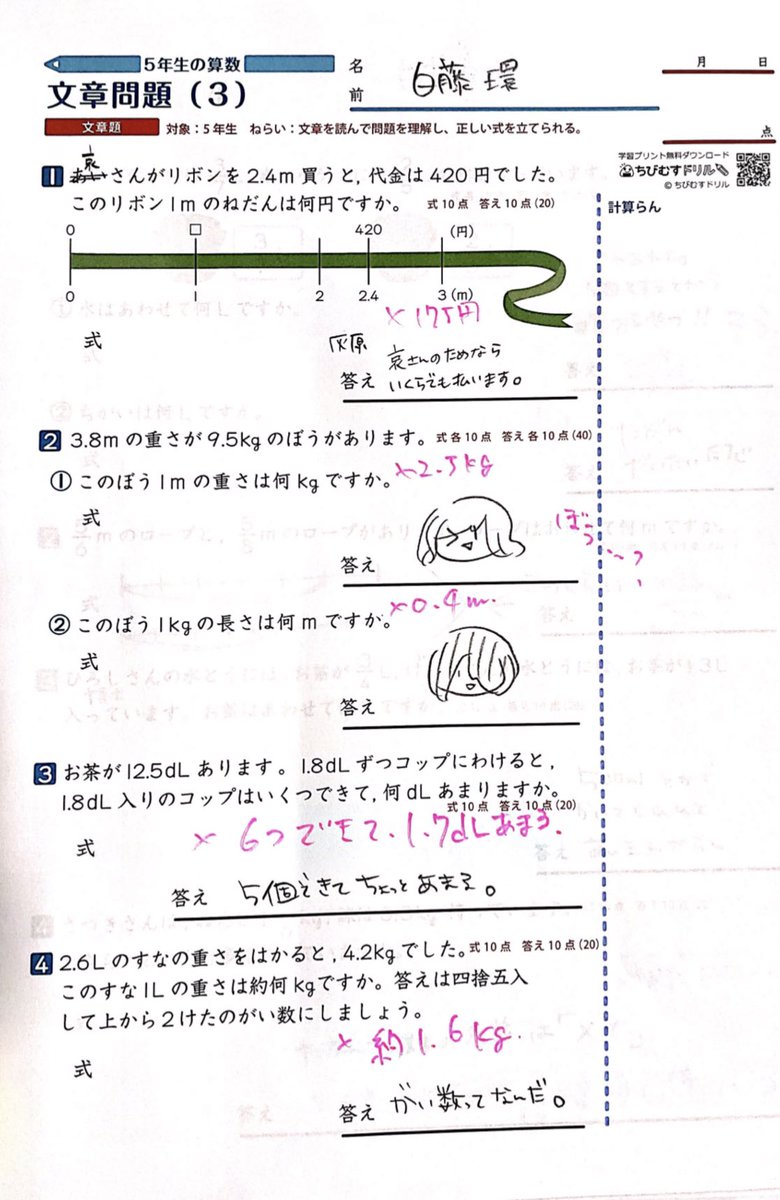 5年生の算数
文章問題（3）
名前
白藤 環
月 日
点
文章題 対象：5年生 ねらい：文章を読んで問題を理解し、正しい式を立てられる。
学習プリント無料ダウンロード
ちびむすドリル
© ちびむすドリル
計算らん
哀
1 あいさんがリボンを2.4m買うと，代金は420円でした。
このリボン1mのねだんは何円ですか。 式10点 答え10点(20)
0 □ 420 (円)
0 1 2 2.4 3 (m)
× 175円
式
灰原
哀さんのためなら
答え いくらでも払います。
2 3.8mの重さが9.5kgのぼうがあります。 式各10点 答え各10点(40)
① このぼう1mの重さは何kgですか。
×2.5kg
式
答え
ぼーっ
② このぼう1kgの長さは何mですか。
×0.4m.
式
答え
3 お茶が12.5dLあります。1.8dLずつコップにわけると，
1.8dL入りのコップはいくつできて，何dLあまりますか。
式10点 答え10点(20)
× 6つできて、1.7dLあまる.
式
答え 5個できてちょっとあまる。
4 2.6Lのすなの重さをはかると，4.2kgでした。 式10点 答え10点(20)
このすな1Lの重さは約何kgですか。答えは四捨五入
して上から2けたのがい数にしましょう。
× 約1.6kg.
式
答え がい数ってなんだ。